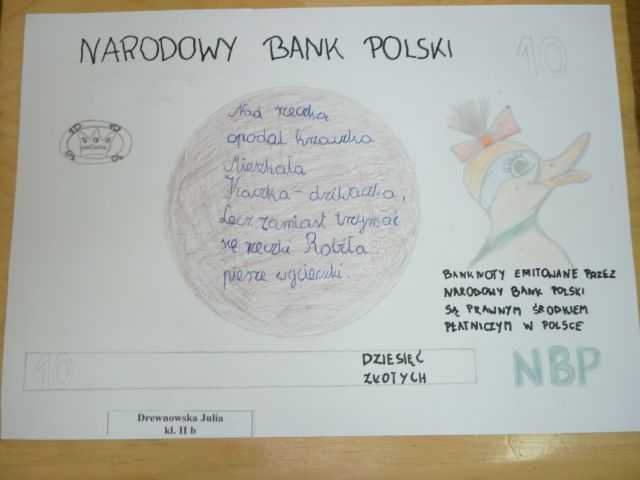 NARODOWY BANK POLSKI
10
Nad rzeczką
opodal krzaczka
Mieszkała
Kaczka-dziwaczka,
Lecz zamiast trzymać
się rzeczki Robiła
piesze wycieczki.
BANKNOTY EMITOWANE PRZEZ
NARODOWY BANK POLSKI
SĄ PRAWNYM ŚRODKIEM
PŁATNICZYM W POLSCE
10
DZIESIĘĆ
ZŁOTYCH
NBP
Drewnowska Julia
kl. II b